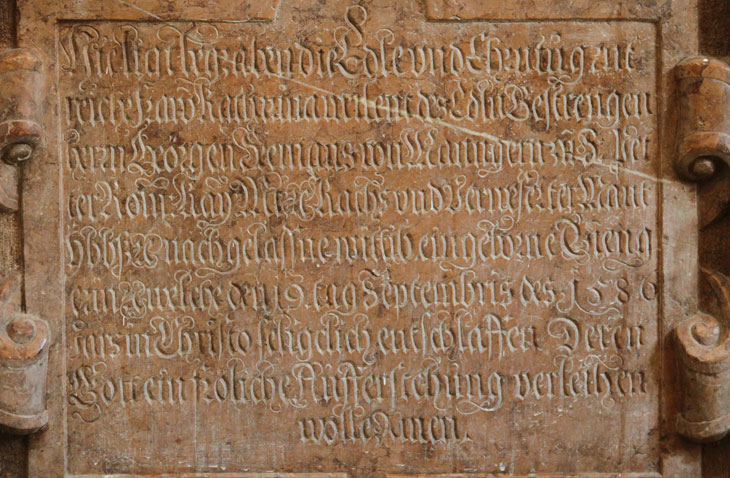 Hie ligt begraben die Edle und Ehrntug ent
reich Fraw Katherina weilent des Edln Gestrengen
herrn Görgen Semans von Mangern zu S. Pet
ter Röm. Kay. Mt. Raths und Verweser der Haubt
nach gelassne witib ein geborne
welche den 19. tag Septembris des 1580
Jars in Christo seligclich entschlaffen Deren
Gott ein froliche Aufferstehung verleihen
wolle Amen.